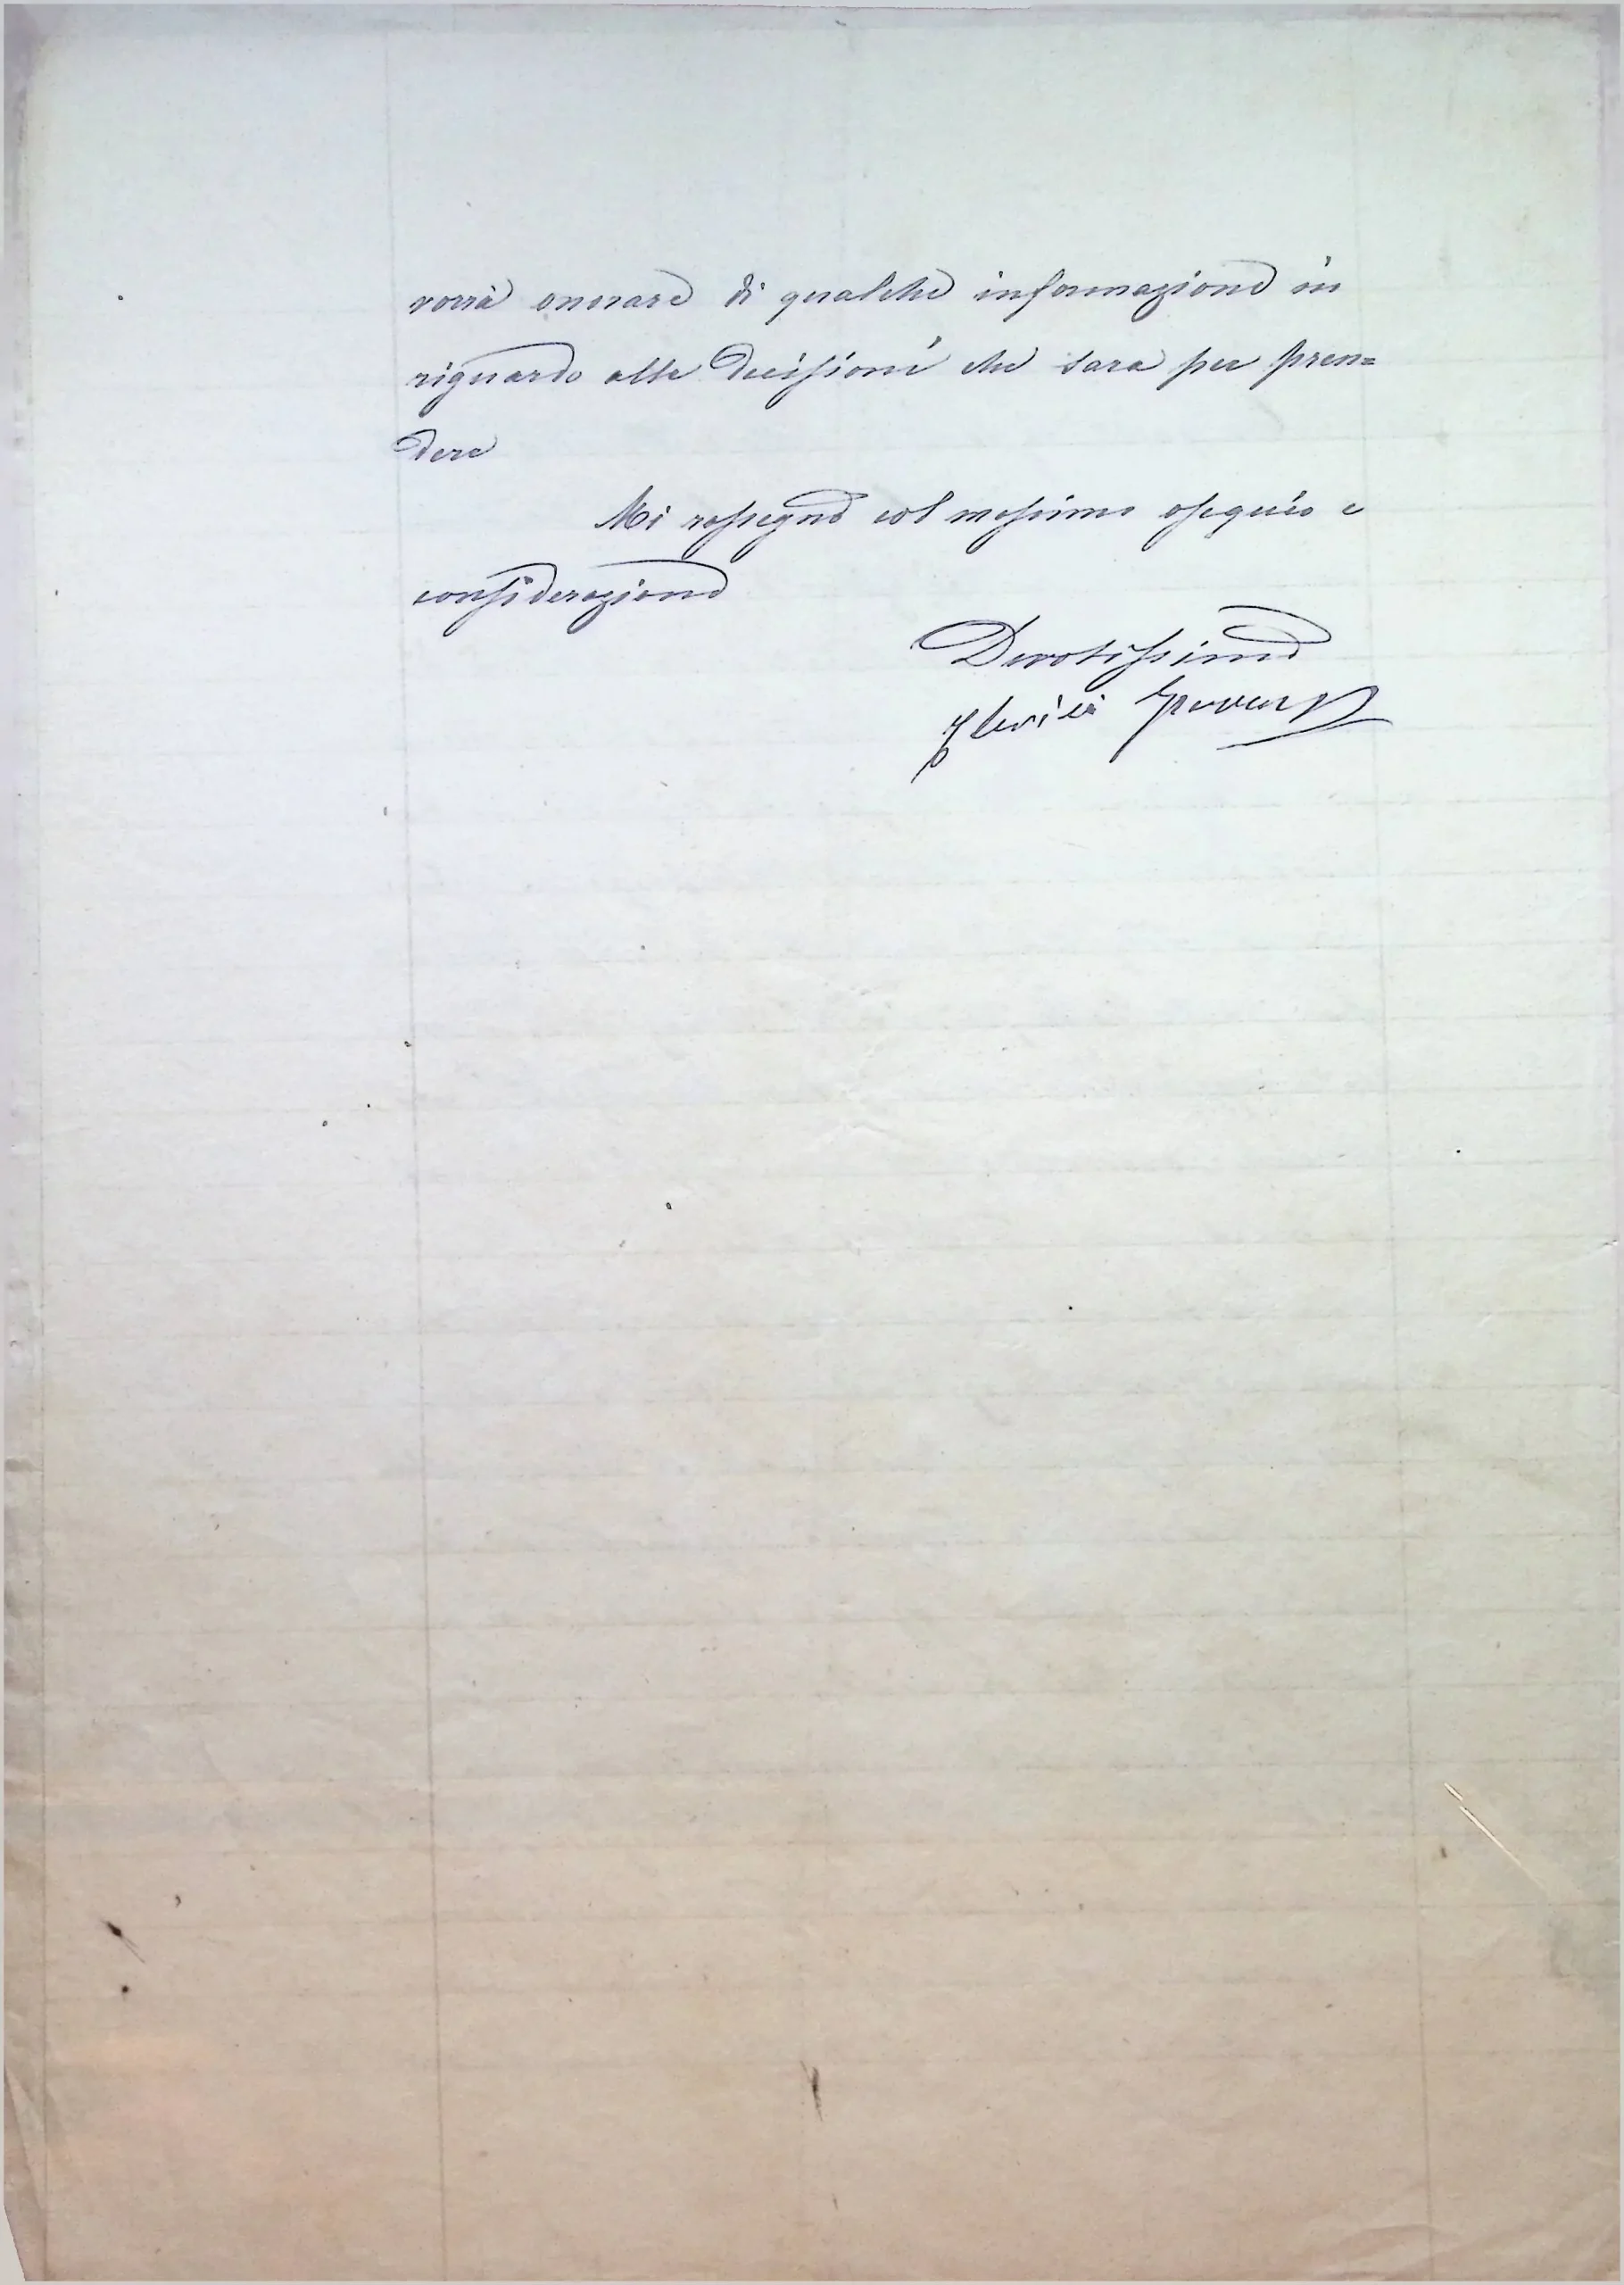 vorrà onorare di qualche informazione in
riguardo alle decisioni che sara per pren=
dere
Mi rassegno col massimo ossequio e
considerazione
Devotissimo